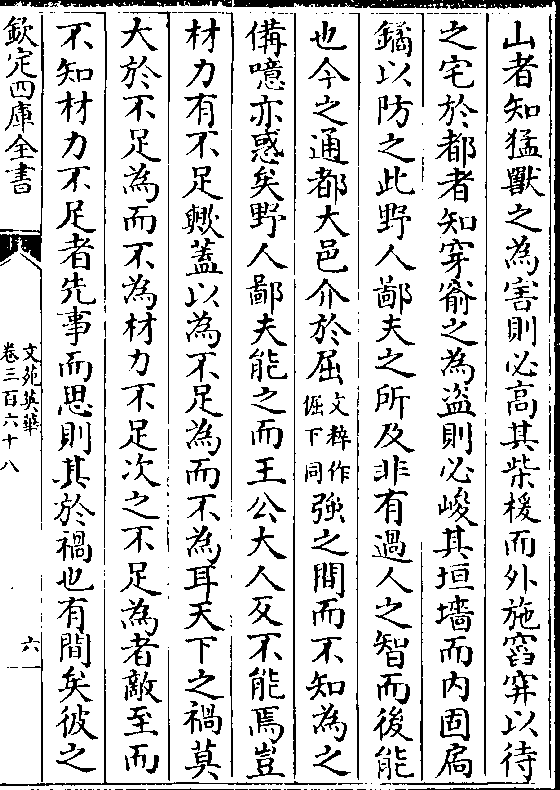 山者知猛獸之為害則必高其柴楥而外施窞穽以待
之宅於都者知穿窬之為盜則必峻其垣墻而内固扄
鐍以防之此野人鄙夫之所及非有過人之智而後能
也今之通都大邑介於屈文粹作倔下同強之間而不知為之
備噫亦惑矣野人鄙夫能之而王公大人反不能焉豈
材力有不足歟蓋以為不足為而不為耳天下之禍莫
大於不足為而不為材力不足次之不足為者敵至而
不知材力不足者先事而思則其於禍也有間矣彼之
欽定四庫全書
文苑英華
卷三百六十八
六